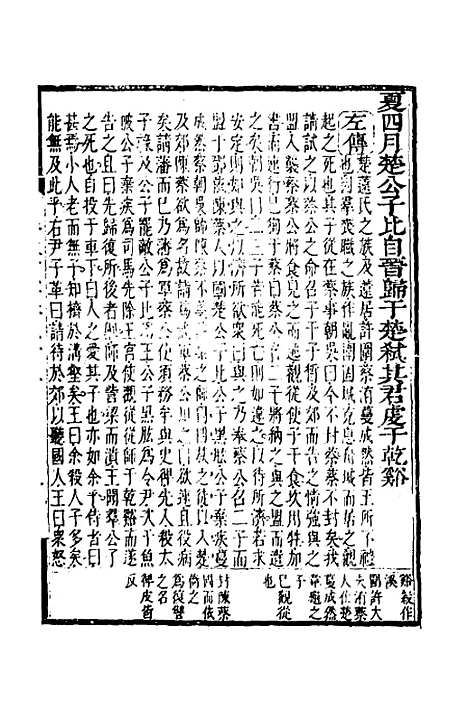 夏四月楚公子比自晉歸于楚弒其君虔于乾谿
左傳楚薳氏之族及薳居許圍蔡洧蔓成然皆王所不禮
也因群喪職之族作亂圍固城克息舟城而居之觀
起之死也其子從在蔡事朝吳曰今不封蔡蔡不封矣我
請試之以蔡公之命召子干子晳及郊而告之情強與之
盟入襲蔡蔡公將食見之而逃觀從使子干食坎用牲加
書而速行己徇于蔡曰蔡公召二子將納之與之盟而遣
之矣朝吳曰二三子若能死亡則如違之以待所濟若求
安定則如與之以濟所欲衆曰與之乃奉蔡公召二子而
盟于鄧依陳蔡人以國楚公子比公子黑肱公子棄疾蔓
成然蔡朝吳帥陳蔡不羹許葉之師因四族之徒以入楚
及郊陳蔡欲為名故請為武軍蔡公知之曰欲速且役病
矣請藩而已乃藩為軍蔡公使須務牟與史猈先入殺大
子祿及公子罷敵公子比為王公子黑肱為令尹次于魚
陂公子棄疾為司馬先除王宮使觀從從師于乾谿而遂
告之且曰先歸復所後者劓師及訾梁而潰王聞羣公子
之死也自投于車下曰人之愛其子也亦如余乎侍者曰
甚焉小人老而無子知擠於溝壑矣王曰余殺人子多矣
能無及此乎右尹子革曰請待於郊以聽國人王曰衆怒
谿穀作
溪
圍許大
夫洧蔡
人仕楚
蔓成然
韋龜之
子
己觀從
也
封陳蔡
國而依
倚之
為復讐
之名
猈皮皆
反